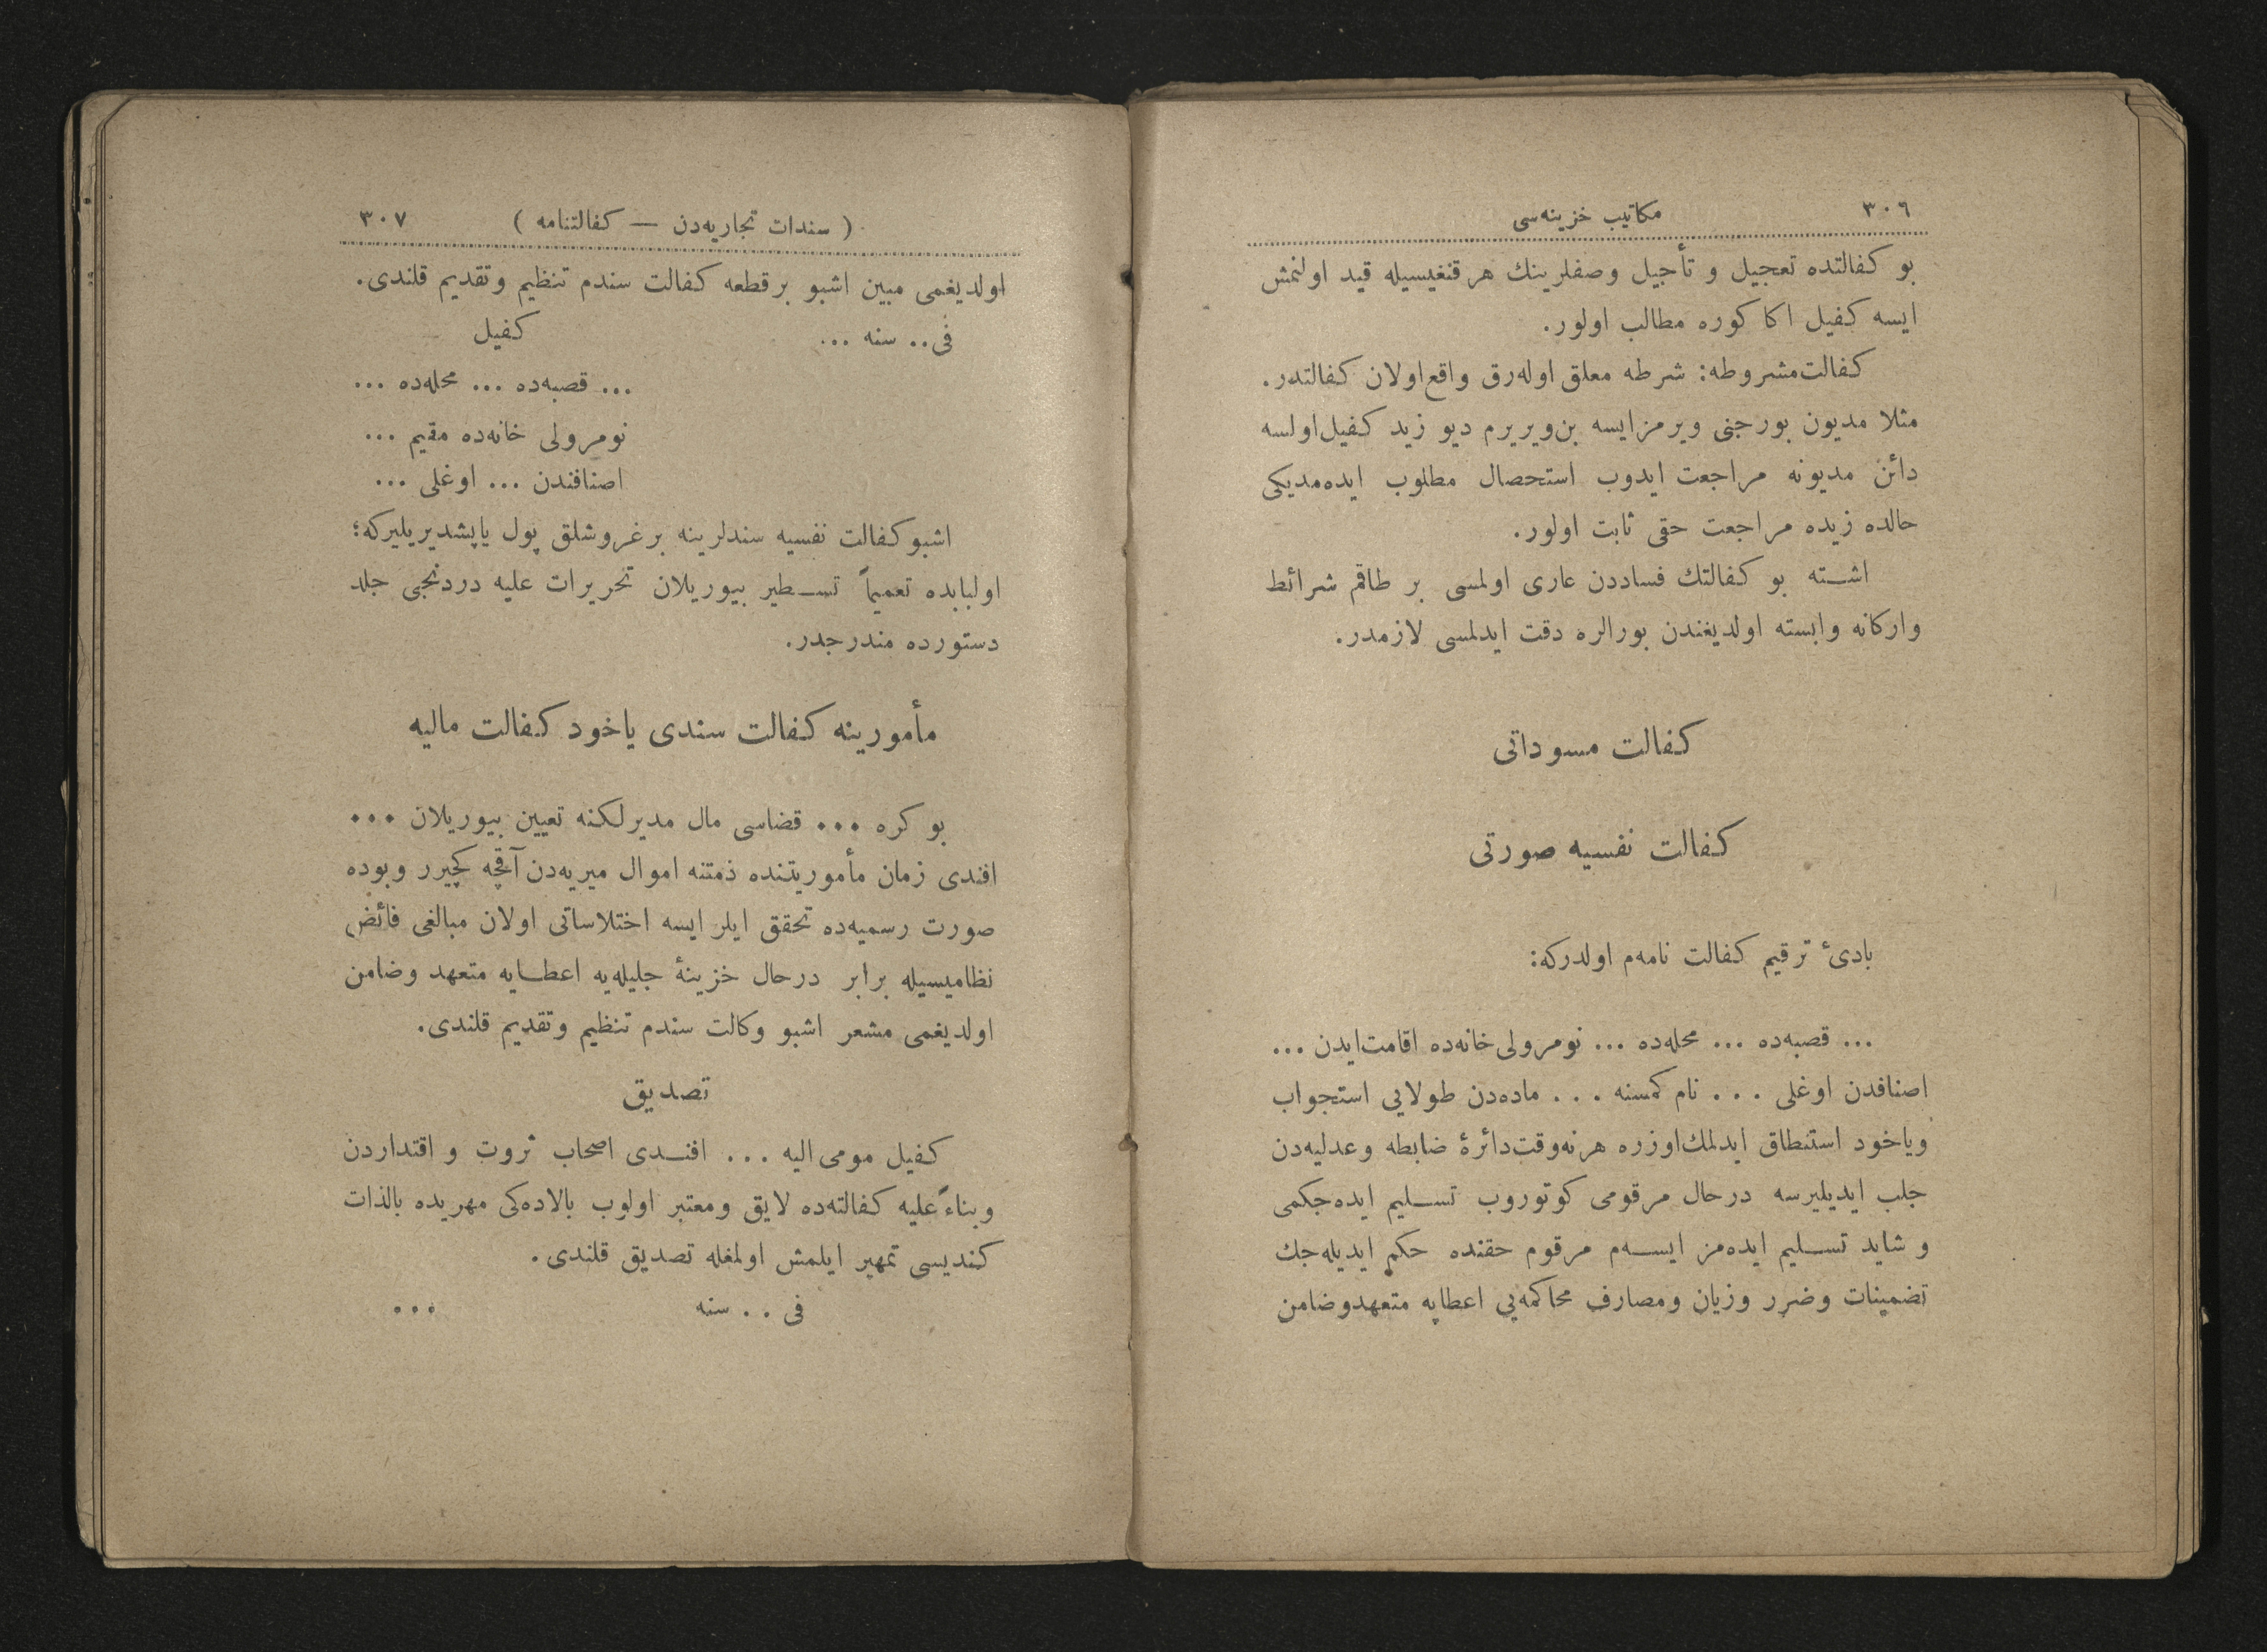 ٣٠٦ مكاتيب خزينه‌سى
بو كفالتده تعجيل و تأجيل وصفلرينك هر قنغيسيله قيد اولنمش
ايسه كفيل اكا كوره مطالب اولور.
كفالت مشروطه: شرطه معلق اوله‌رق واقع اولان كفالتدر.
مثلا مديون بورجنى ويرمز ايسه بن ويريرم ديو زيد كفيل اولسه
دائن مديونه مراجعت ايدوب استحصال مطلوب ايده‌مديكى
حالده زيده مراجعت حقى ثابت اولور.
اشته بو كفالتك فساددن عارى اولمسى بر طاقم شرائط
واركانه وابسته اولديغندن بورالره دقت ايدلمسى لازمدر.
كفالت مسوداتى
كفالت نفسيه صورتى
بادئ ترقيم كفالت نامه‌م اولدركه:
... قصبه‌ده ... محله‌ده ... نومرولى خانه‌ده اقامت ايدن ...
اصنافدن اوغلى ... نام كمسنه ... ماده‌دن طولايى استجواب
وياخود استنطاق ايدلمك اوزره هر نه‌وقت دائرۀ ضابطه وعدليه‌دن
جلب ايديليرسه درحال مرقومى كوتوروب تسليم ايده‌جكمى
و شايد تسليم ايده‌مز ايسه‌م مرقوم حقنده حكم ايديله‌جك
تضمينات وضرر وزيان ومصارف محاكمه‌يى اعطايه متعهد وضامن
( سندات تجاريه‌دن — كفالتنامه ) ٣٠٧
اولديغمى مبين اشبو بر قطعه كفالت سندم تنظيم وتقديم قلندى.
فى .. سنه ... كفيل
... قصبه‌ده ... محله‌ده ...
نومرولى خانه‌ده مقيم ...
اصنافندن ... اوغلى ...
اشبو كفالت نفسيه سندلرينه بر غروشلق پول ياپشديريليركه؛
اولبابده تعميماً تسطير بيوريلان تحريرات عليه دردنجى جلد
دستورده مندرجدر.
مأمورينه كفالت سندى ياخود كفالت ماليه
بو كره ... قضاسى مال مديرلكنه تعيين بيوريلان ...
افندى زمان مأموريتنده ذمتنه اموال ميريه‌دن آقچه كچيرر وبوده
صورت رسميه‌ده تحقق ايلر ايسه اختلاساتى اولان مبالغى فائض
نظاميسيله برابر درحال خزينۀ جليله‌يه اعطايه متعهد وضامن
اولديغمى مشعر اشبو وكالت سندم تنظيم وتقديم قلندى.
تصديق
كفيل مومى اليه ... افندى اصحاب ثروت و اقتداردن
وبناءً عليه كفالته‌ده لايق ومعتبر اولوب بالاده‌كى مهريده بالذات
كنديسى تمهير ايلمش اولمغله تصديق قلندى.
فى .. سنه ...